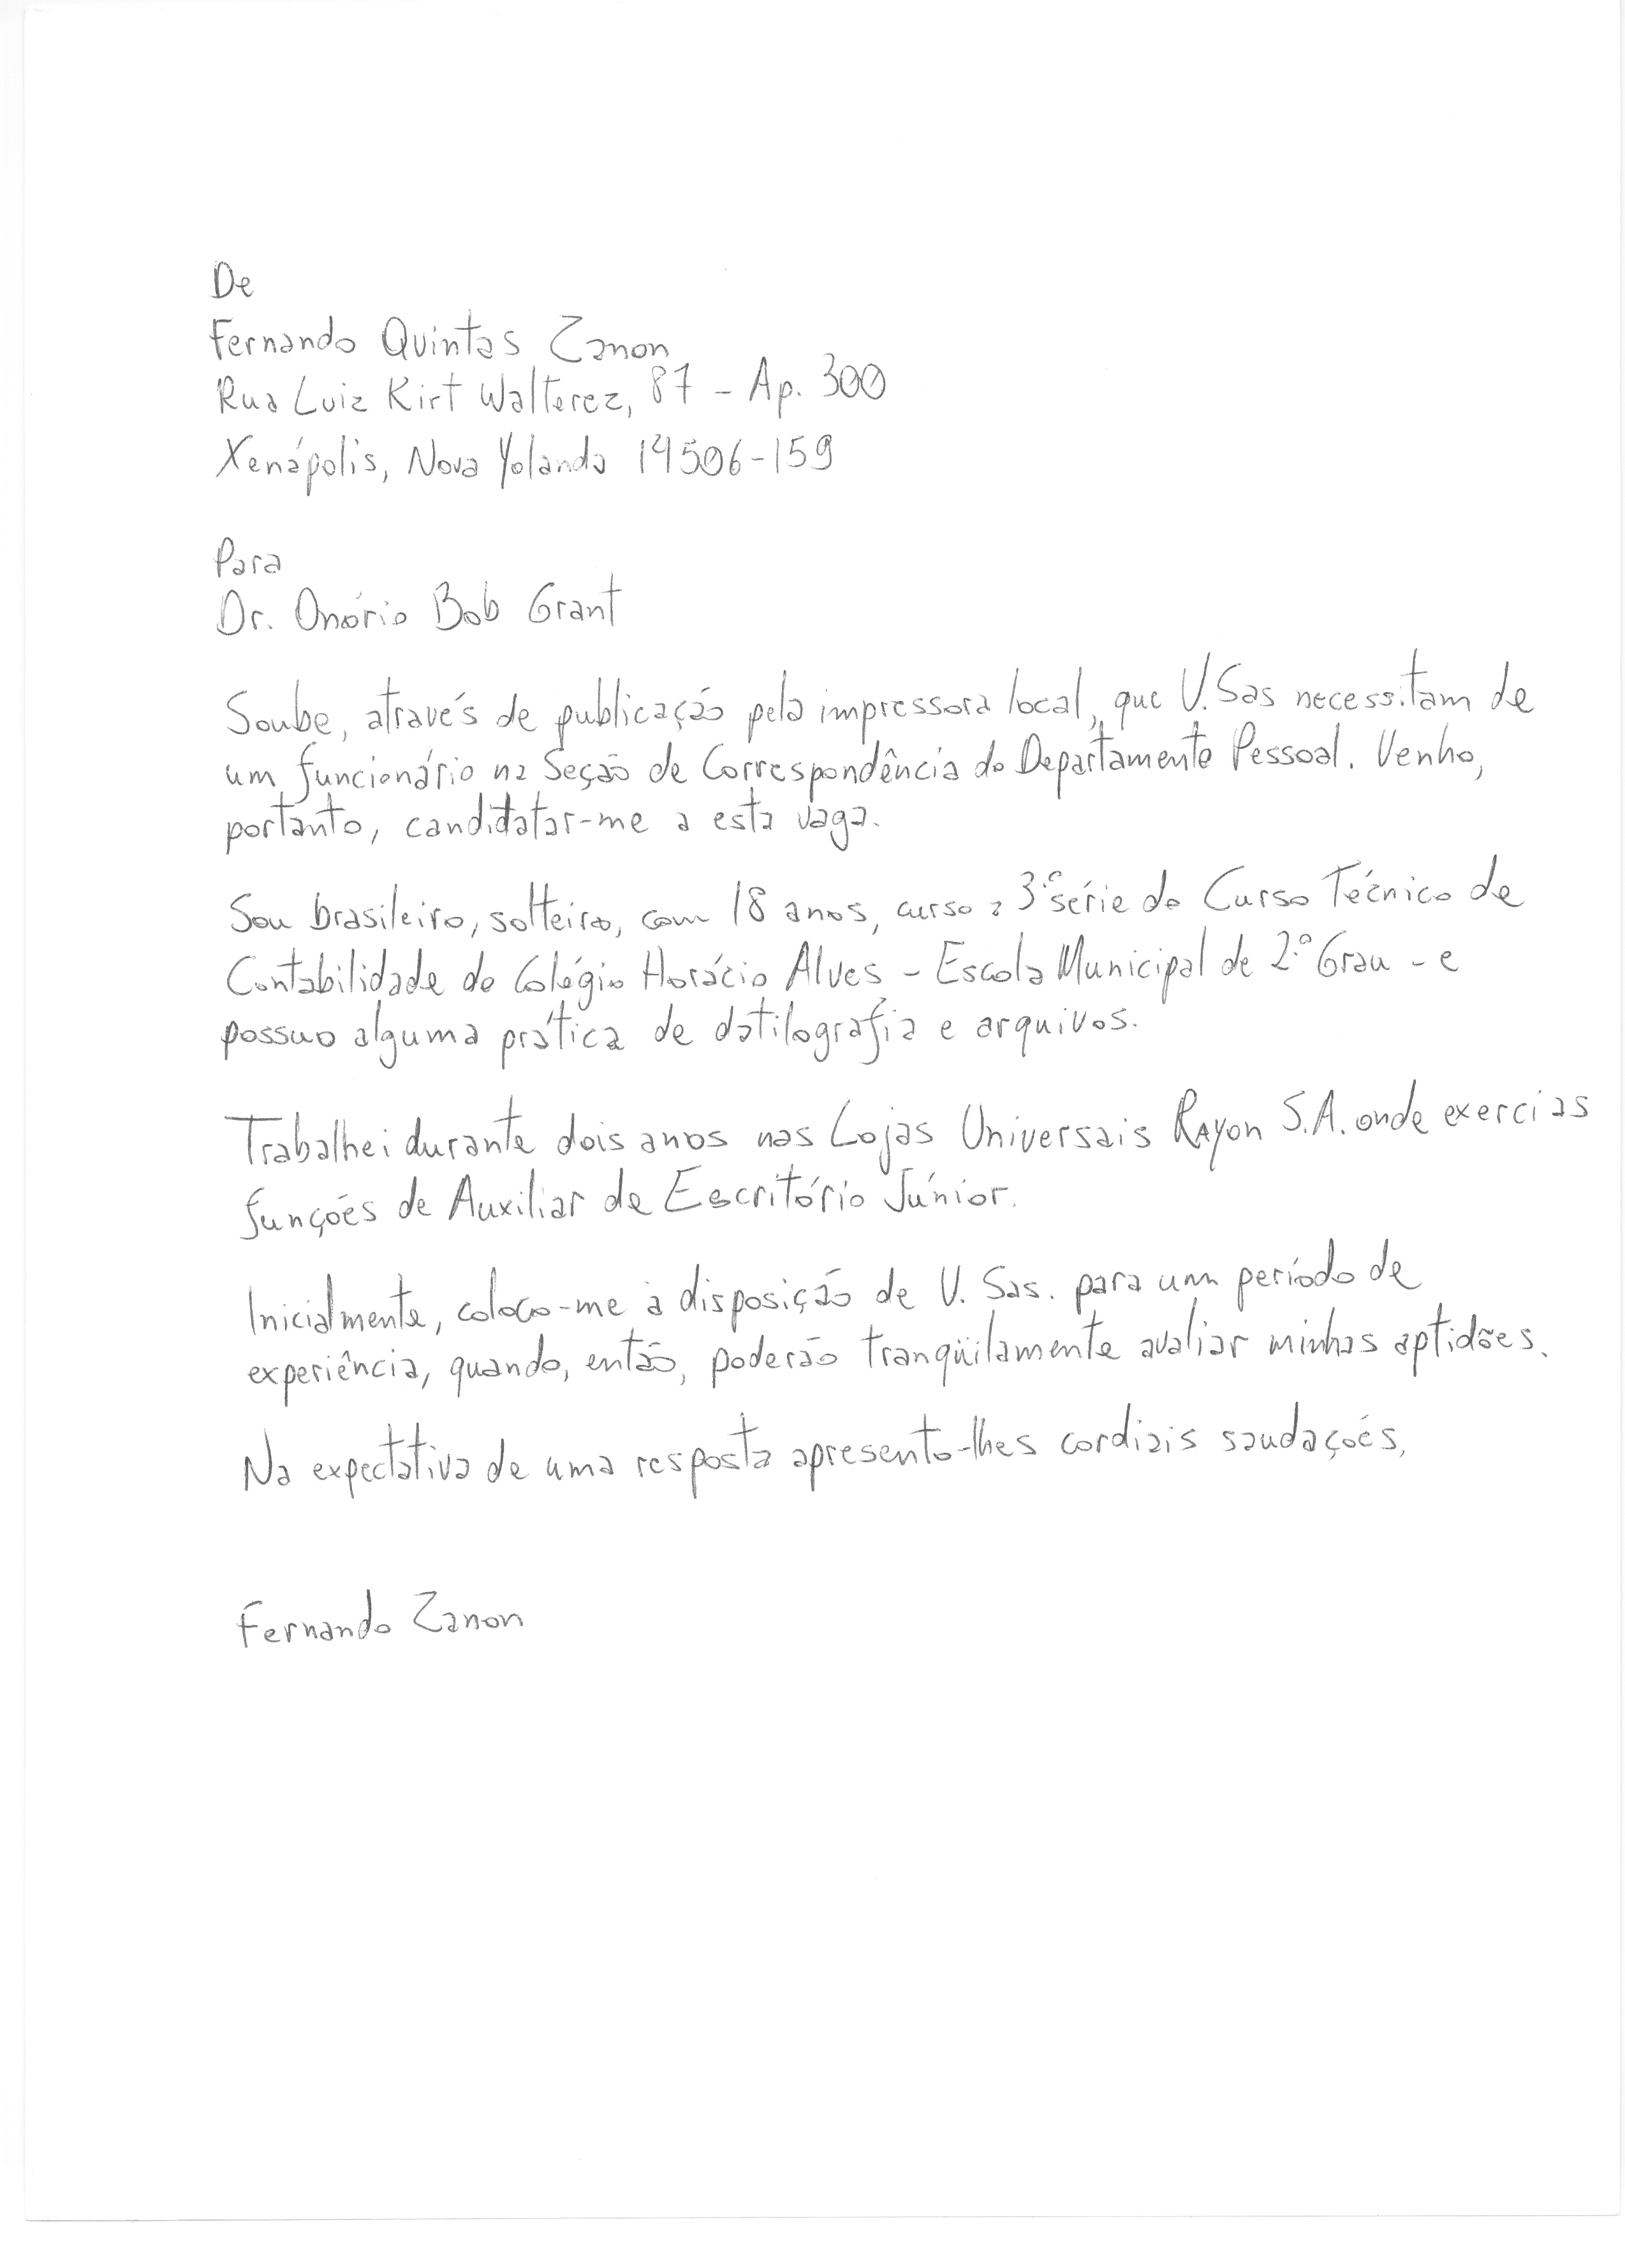 De
Fernando Quintas Zanon
Rua Luiz Kirt Walterez, 87 - Ap. 300
Xenápolis, Nova Yolanda 14506-159
Para
Dr. Onório Bob Grant
Soube, através de publicação pela impressora local, que V. Sas necessitam de
um funcionário na Seção de Correspondência do Departamento Pessoal. Venho,
portanto, candidatar-me a esta vaga.
Sou brasileiro, solteiro, com 18 anos, curso a 3.ª série do Curso Técnico de
Contabilidade do Colégio Horácio Alves - Escola Municipal de 2.º Grau - e
possuo alguma prática de datilografia e arquivos.
Trabalhei durante dois anos nas Lojas Universais Rayon S.A. onde exerci as
funções de Auxiliar de Escritório Júnior.
Inicialmente, coloco-me à disposição de V. Sas. para um período de
experiência, quando, então, poderão tranqüilamente avaliar minhas aptidões.
Na expectativa de uma resposta apresento-lhes cordiais saudações,
Fernando Zanon